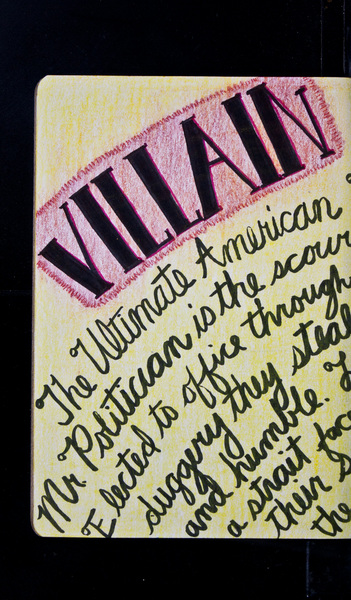 VILLAIN
The Ultimate American
Mr. Politician is the scour
Elected to office through
duggery they steal
and humble.
a strait face
their
the